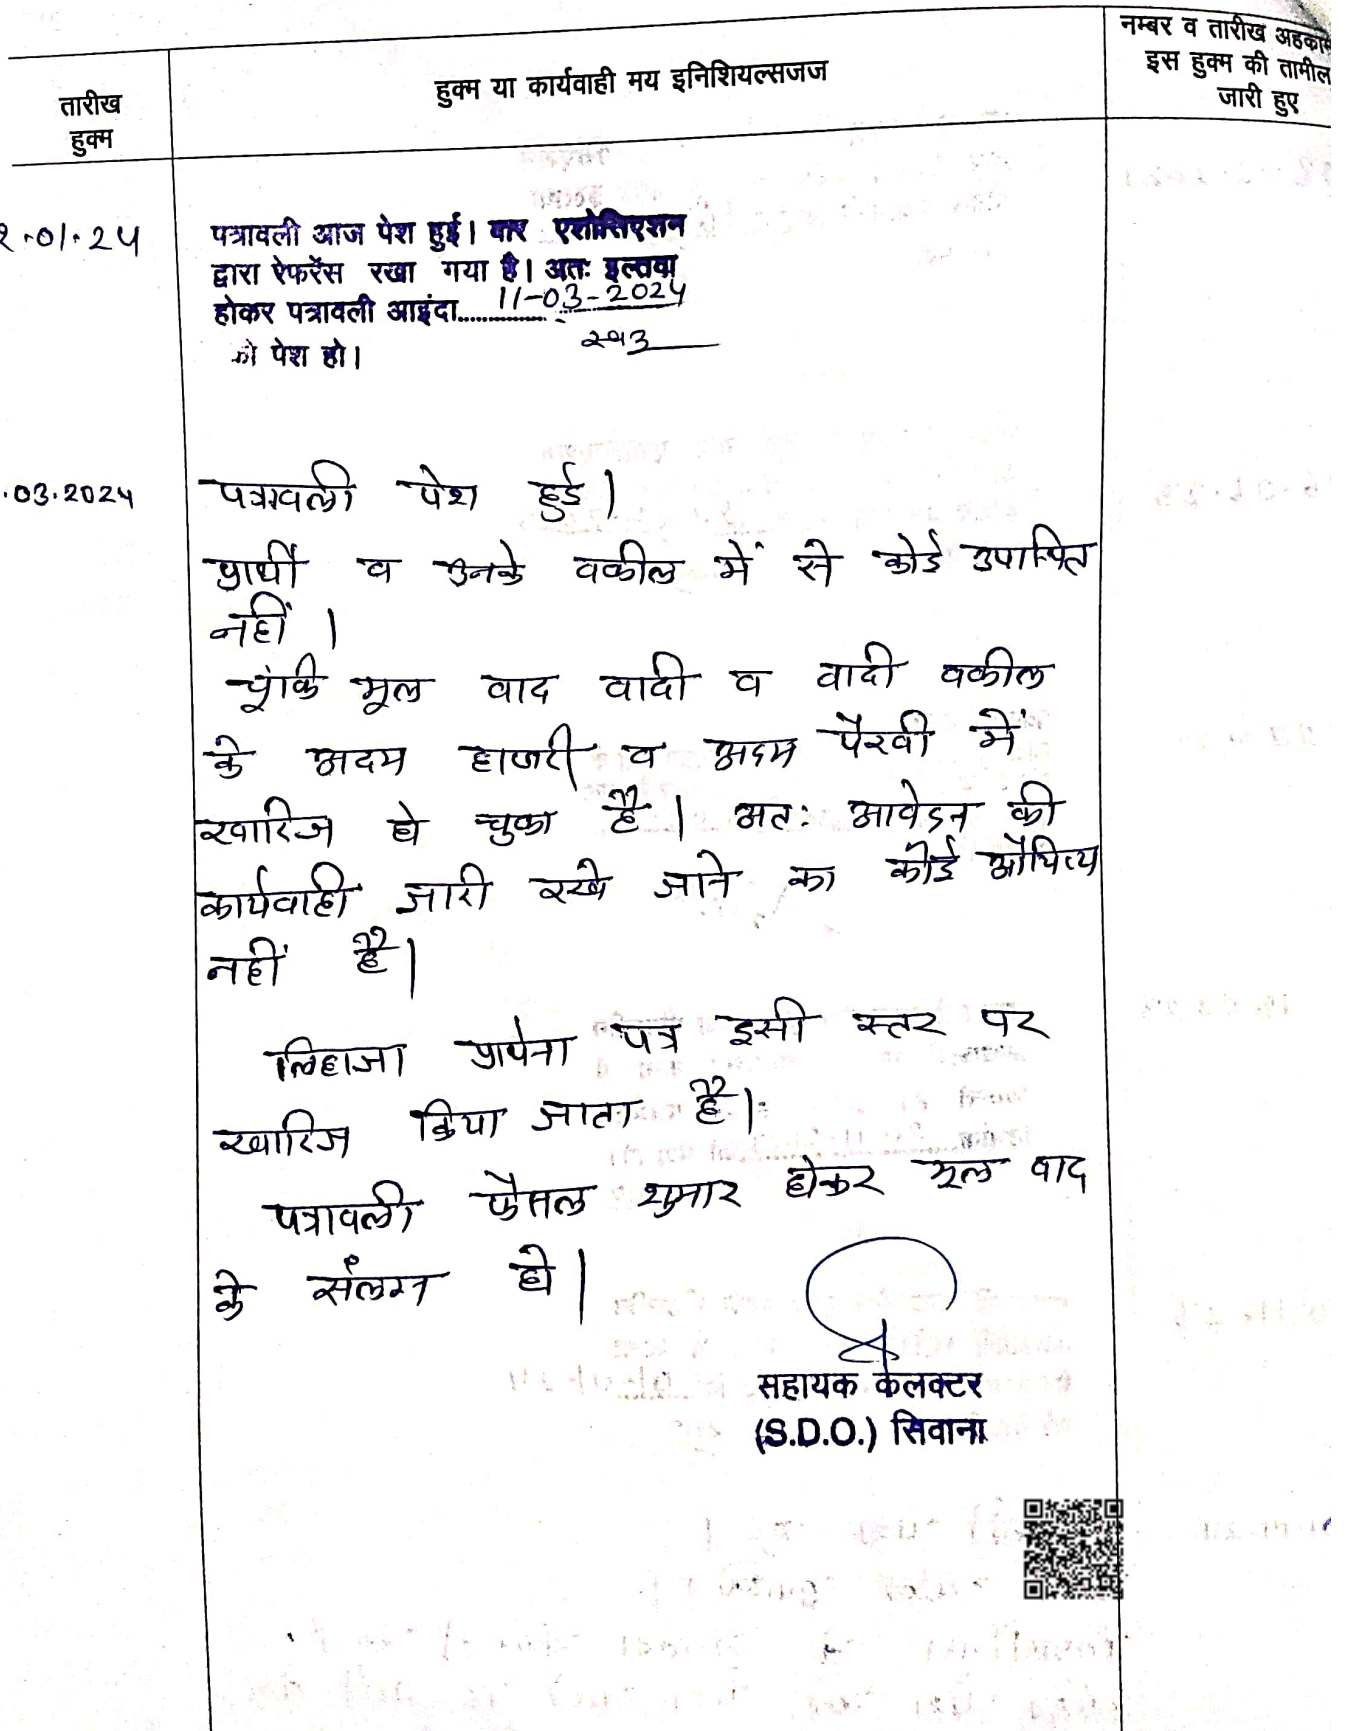 तारीख
हुक्म
हुक्म या कार्यवाही मय इनिशियल्सजज
नम्बर व तारीख अहकाम
इस हुक्म की तामील
जारी हुए
2.01.24
पत्रावली आज पेश हुई। बार एसोसिएशन
द्वारा ऐफरेंस रखा गया है। अतः इल्तवा
होकर पत्रावली आइंदा 11-03-2024
को पेश हो।
.03.2024
पत्रावली पेश हुई।
प्रार्थी व उनके वकील में से कोई उपस्थित
नहीं।
चूंकि मूल वाद वादी व वादी वकील
के अदम हाजरी व अदम पैरवी में
खारिज हो चुका है। अतः आवेदन की
कार्यवाही जारी रखे जाने का कोई औचित्य
नहीं है।
लिहाजा प्रार्थना पत्र इसी स्तर पर
खारिज किया जाता है।
पत्रावली फैसल शुमार होकर मूल वाद
के संलग्न हो।
सहायक कलक्टर
(S.D.O.) सिवाना